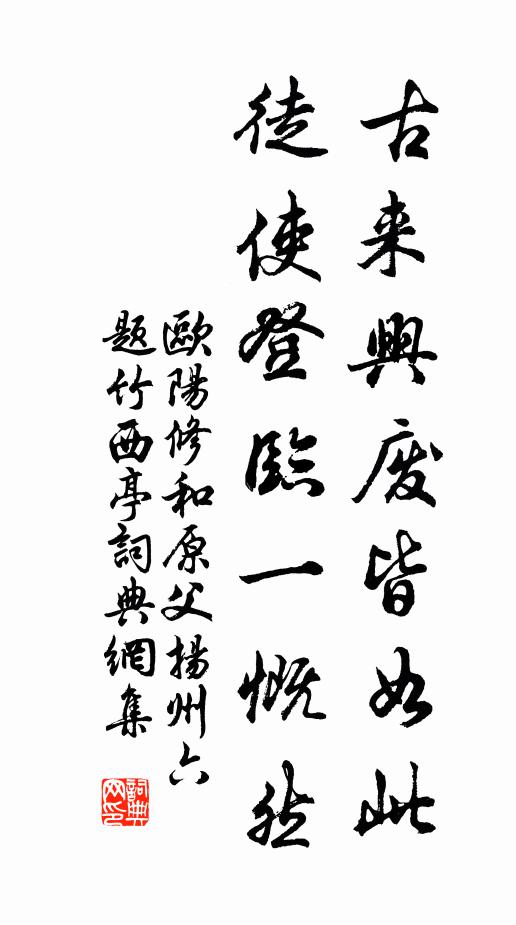 古来興废皆如此
徒使登臨一慨然
歐陽修和原父揚州六
题竹西亭詞典網集
詞典网印